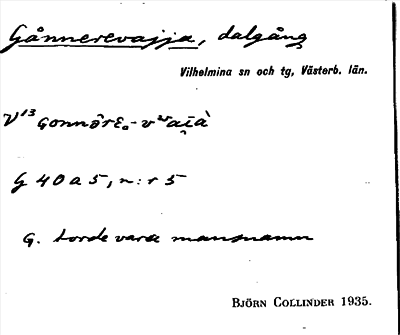 Gånnerevajja, dalgång
Vilhelmina sn och tg, Västerb. län.
V13 gonnərε-vaĩà
G 40 a 5, n:r 5
G. torde vara mansnamn
BJÖRN COLLINDER 1935.